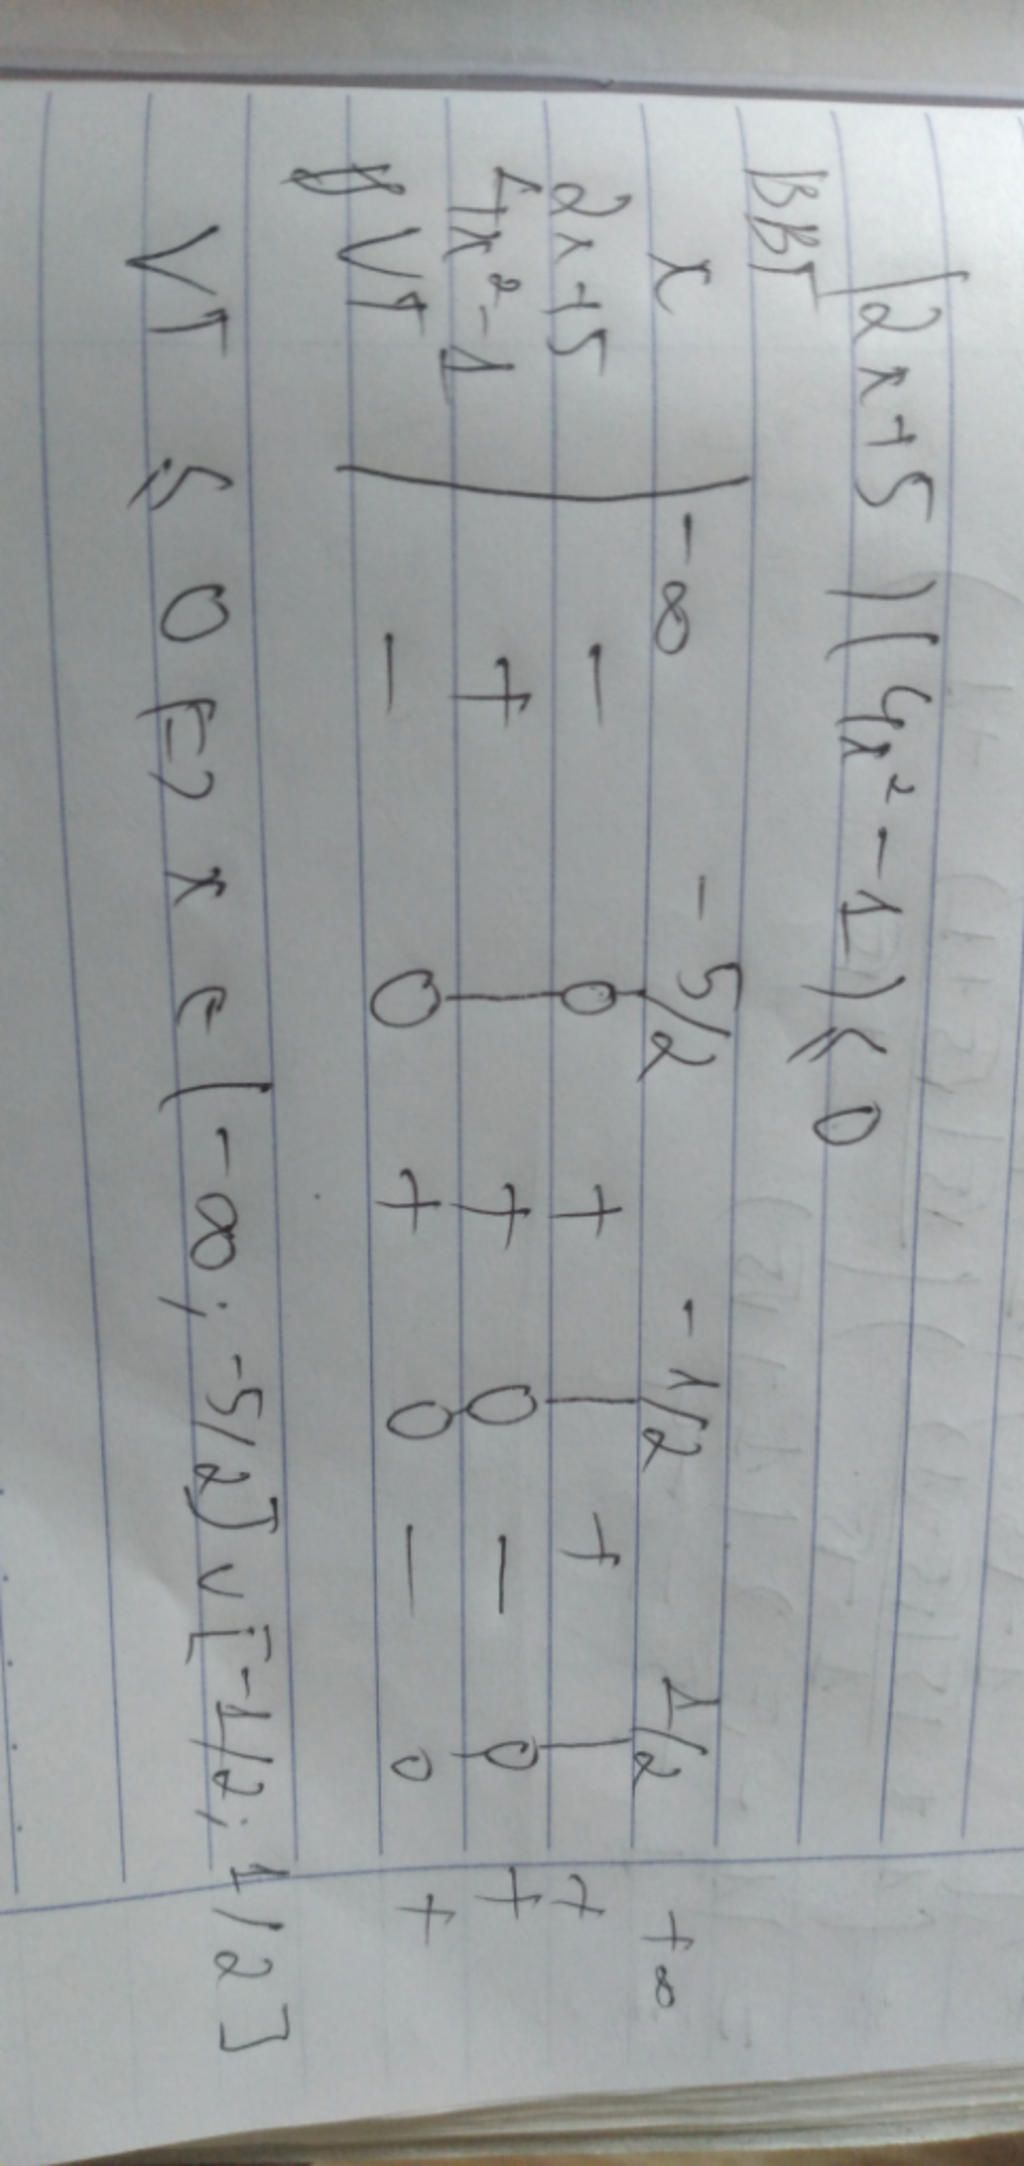 (2x+5)(4x²-1) ≤ 0
BBT
x -∞ -5/2 -1/2 1/2 +∞
2x+5 - 0 + + +
4x²-1 + + 0 - 0 +
VT - 0 + 0 - 0 +
VT ≤ 0 <=> x ∈ (-∞; -5/2] ∪ [-1/2; 1/2]